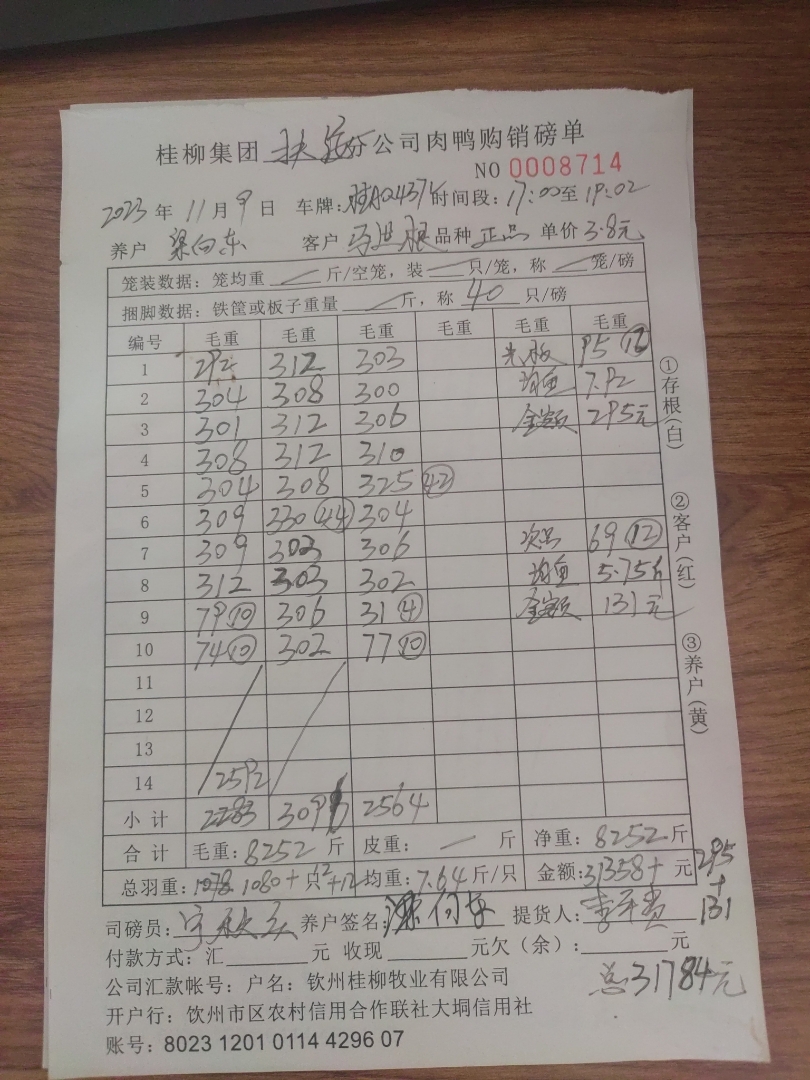 桂柳集团 扶绥分公司肉鸭购销磅单
NO 0008714
2023 年 11 月 9 日 车牌: 时间段: 17:00至 19:02
养户 梁向东 客户 品种 正品 单价 3.8元
笼装数据: 笼均重 斤/空笼, 装 只/笼, 称 笼/磅
捆脚数据: 铁筐或板子重量 斤, 称 40 只/磅
编号 毛重 毛重 毛重 毛重 毛重 毛重
1 292 312 303 光板 95 ⑫
2 304 308 300 均重 7.92
3 301 312 306 金额 295元
4 308 312 310
5 304 308 325 ㊷
6 309 330 (44) 304
7 309 303 306 次品 69 ⑫
8 312 303 302 均重 5.75
9 79 ⑩ 306 31 ④ 金额 131元
10 74 ⑩ 302 77 ⑩
11
12
13
14 2592
小计 2283 309 2564
合计 毛重: 8252 斤 皮重: 斤 净重: 8252 斤
总羽重: 1080+ 只 12+12 均重: 7.64 斤/只 金额: 31358+ 元 295
+
131
司磅员: 养户签名: 提货人:
付款方式: 汇 元 收现 元欠(余): 元
公司汇款帐号: 户名: 钦州桂柳牧业有限公司 总31784元
开户行: 饮州市区农村信用合作联社大垌信用社
账号: 8023 1201 0114 4296 07
①存根(白)
②客户(红)
③养户(黄)